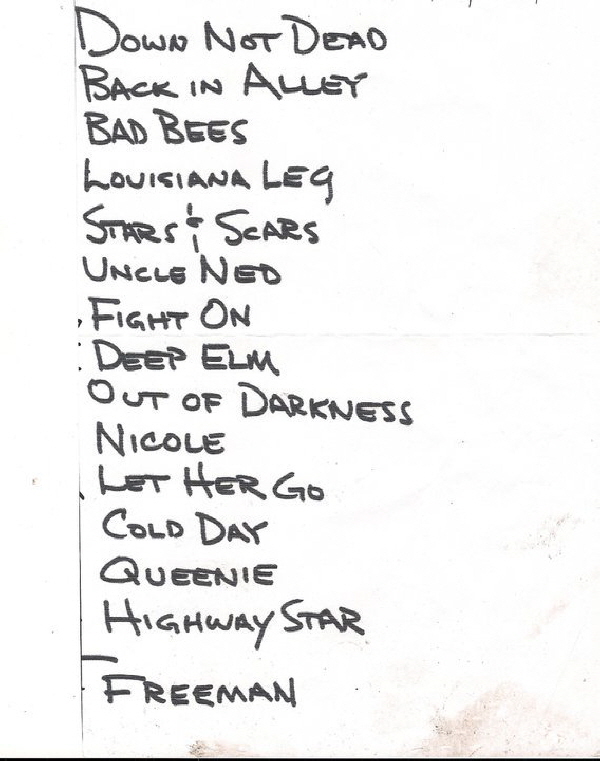 Down Not Dead
Back in Alley
Bad Bees
Louisiana Leg
Stars & Scars
Uncle Ned
Fight On
Deep Elm
Out of Darkness
Nicole
Let Her Go
Cold Day
Queenie
Highway Star
Freeman